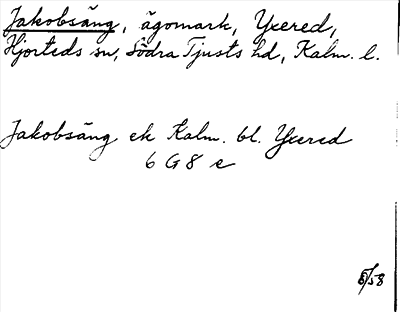 Jakobsäng, ägomark, Yxered,
Hjorteds sn, Södra Tjusts hd, Kalm. l.
Jakobsäng ek Kalm. bl. Yxered
6 G 8 e